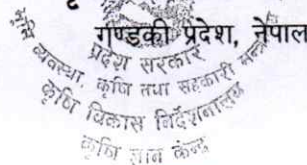 गण्डकी प्रदेश, नेपाल
प्रदेश सरकार
भूमि व्यवस्था, कृषि तथा सहकारी मन्त्रालय
कृषि विकास निर्देशनालय
कृषि ज्ञान केन्द्र